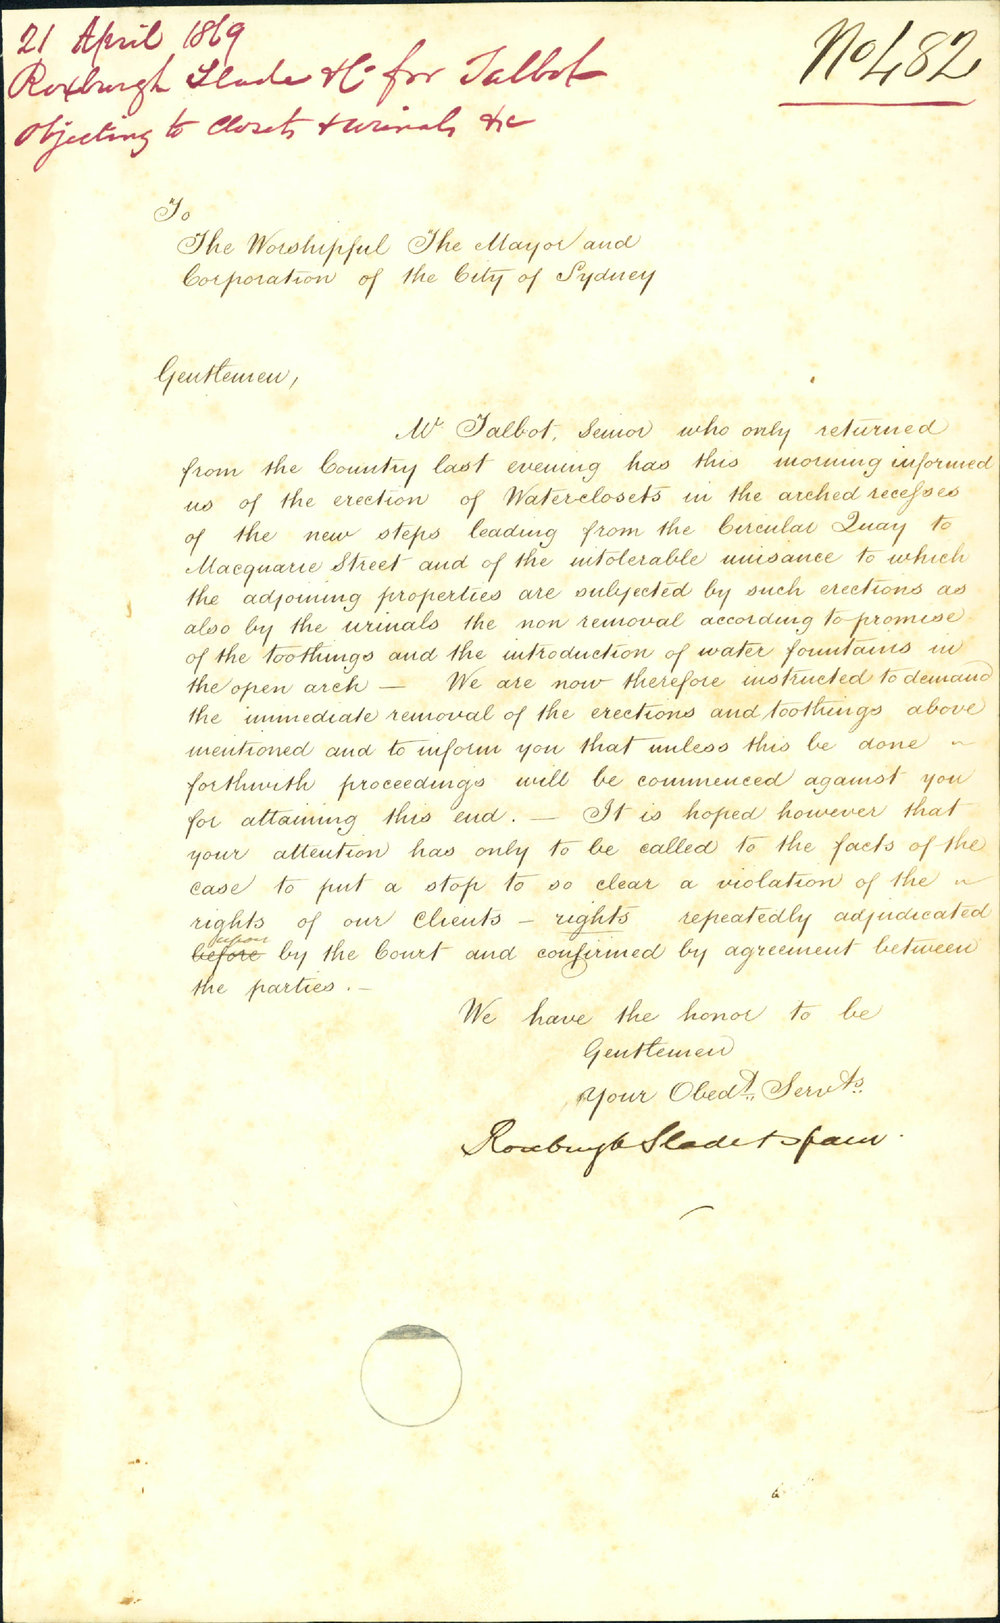 21 April 1869
No 482
Roxburgh Slade & Co for Talbot
Objecting to closets & urinals &c
To
The Worshipful The Mayor and
Corporation of the City of Sydney
Gentlemen,
Mr Talbot, Senior who only returned
from the Country last evening has this morning informed
us of the erection of Waterclosets in the arched recesses
of the new steps leading from the Circular Quay to
Macquarie Street and of the intolerable nuisance to which
the adjoining properties are subjected by such erections as
also by the urinals the non removal according to promise
of the toothings and the introduction of water fountains in
the open arch — We are now therefore instructed to demand
the immediate removal of the erections and toothings above
mentioned and to inform you that unless this be done ~
forthwith proceedings will be commenced against you
for attaining this end. — It is hoped however that
your attention has only to be called to the facts of the
case to put a stop to so clear a violation of the ~
rights of our Clients – rights repeatedly adjudicated
upon
before by the Court and confirmed by agreement between
the parties. –
We have the honor to be
Gentlemen
Your Obedt. Servts.
Roxburgh Slade & Spain.